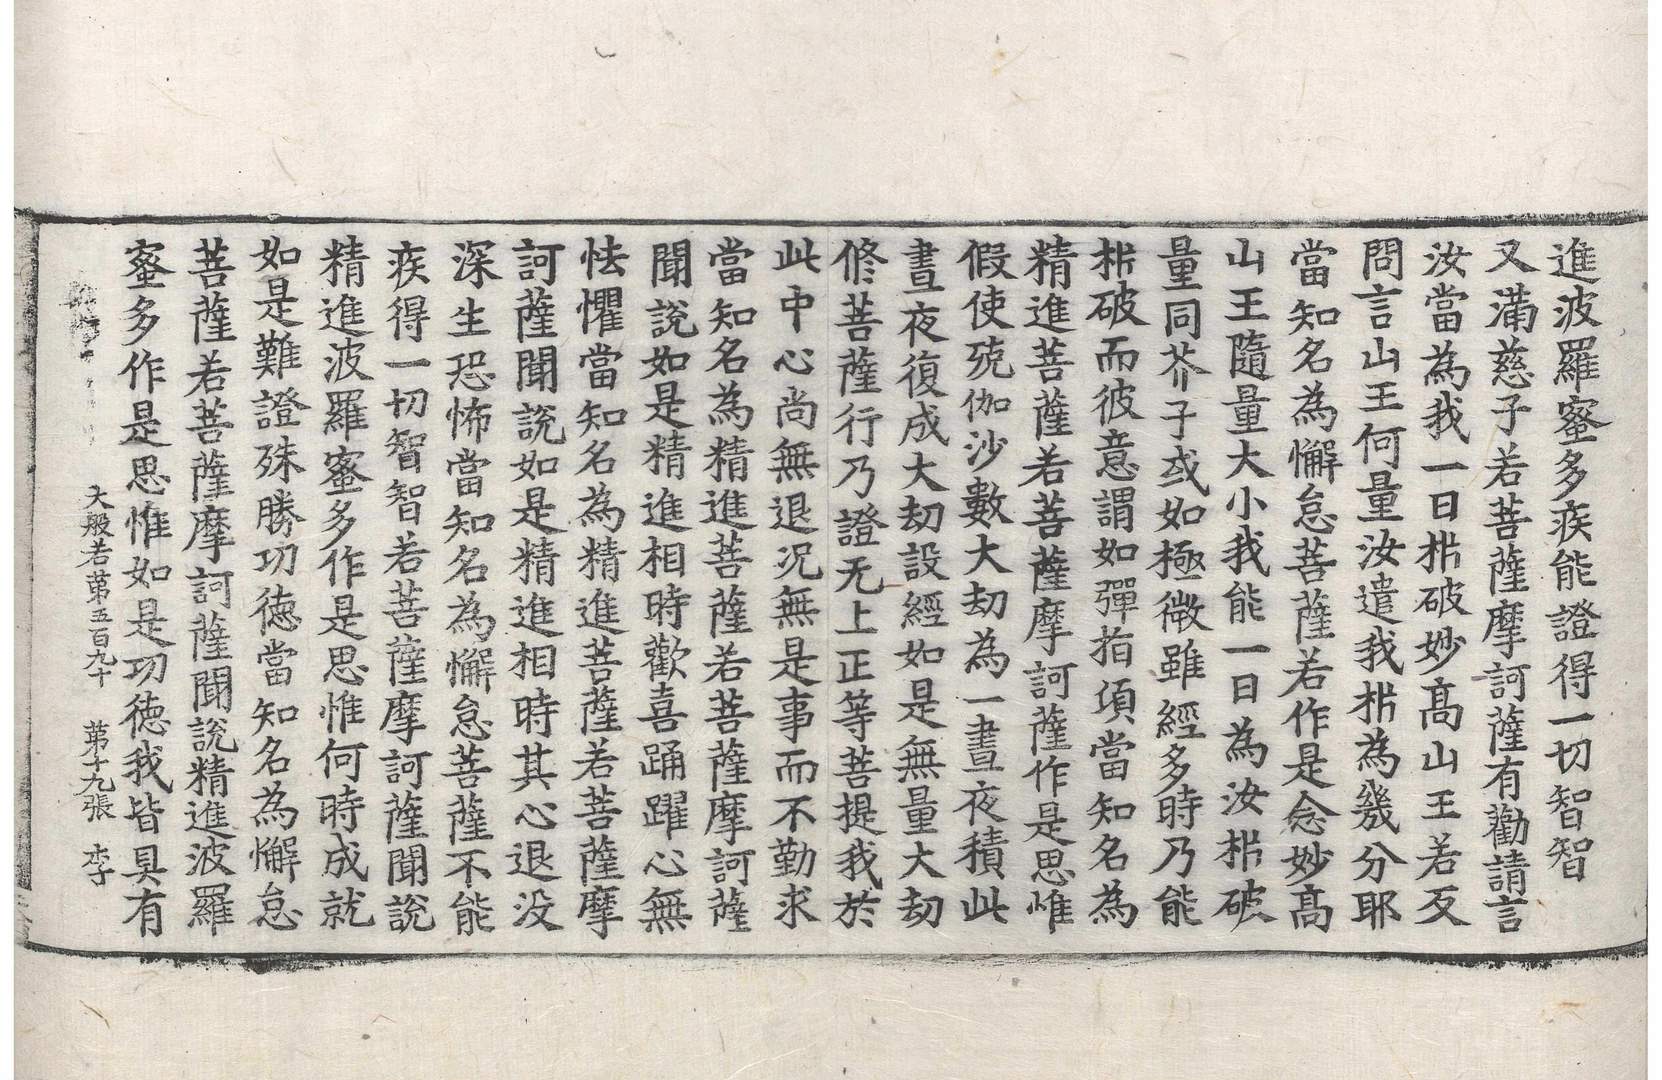 進波羅蜜多疾能證得一切智智
又滿慈子若菩薩摩訶薩有勸請言
汝當為我一日枿破妙高山王若反
問言山王何量汝遣我枿為幾分耶
當知名為懈怠菩薩若作是念妙高
山王隨量大小我能一日為汝枿破
量同芥子或如極微雖經多時乃能
枿破而彼意謂如彈指頃當知名為
精進菩薩若菩薩摩訶薩作是思惟
假使殑伽沙數大劫為一晝夜積此
晝夜復成大劫設經如是無量大劫
修菩薩行乃證无上正等菩提我於
此中心尚無退况無是事而不勤求
當知名為精進菩薩若菩薩摩訶薩
聞說如是精進相時歡喜踊躍心無
怯懼當知名為精進菩薩若菩薩摩
訶薩聞說如是精進相時其心退没
深生恐怖當知名為懈怠菩薩不能
疾得一切智智若菩薩摩訶薩聞說
精進波羅蜜多作是思惟何時成就
如是難證殊勝功德當知名為懈怠
菩薩若菩薩摩訶薩聞說精進波羅
蜜多作是思惟如是功德我皆具有
大般若第五百九十 第十九張 李